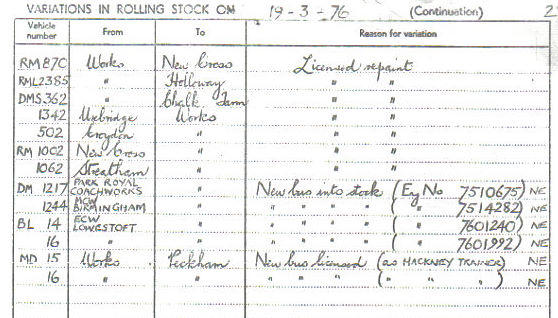 VARIATIONS IN ROLLING STOCK ON 19-3-76 (Continuation) 2
Vehicle number From To Reason for variation
RM 870 Works New Cross Licensed repaint
RML2385 " Holloway " "
DMS 362 " Chalk Farm " "
1342 Uxbridge Works " "
502 Croydon " " "
RM 1002 New Cross " " "
1062 Streatham " " "
DM 1217 PARK ROYAL COACHWORKS " New bus into stock (Eng No 7510675) NE
1244 MCW BIRMINGHAM " " " " " ( " 7514282) NE
BL 14 ECW LOWESTOFT " " " " " ( " 7601240) NE
16 " " " " " " ( " 7601992) NE
MD 15 Works Peckham New bus licensed (as HACKNEY TRAINER) NE
16 " " " " " ( " " " ) NE